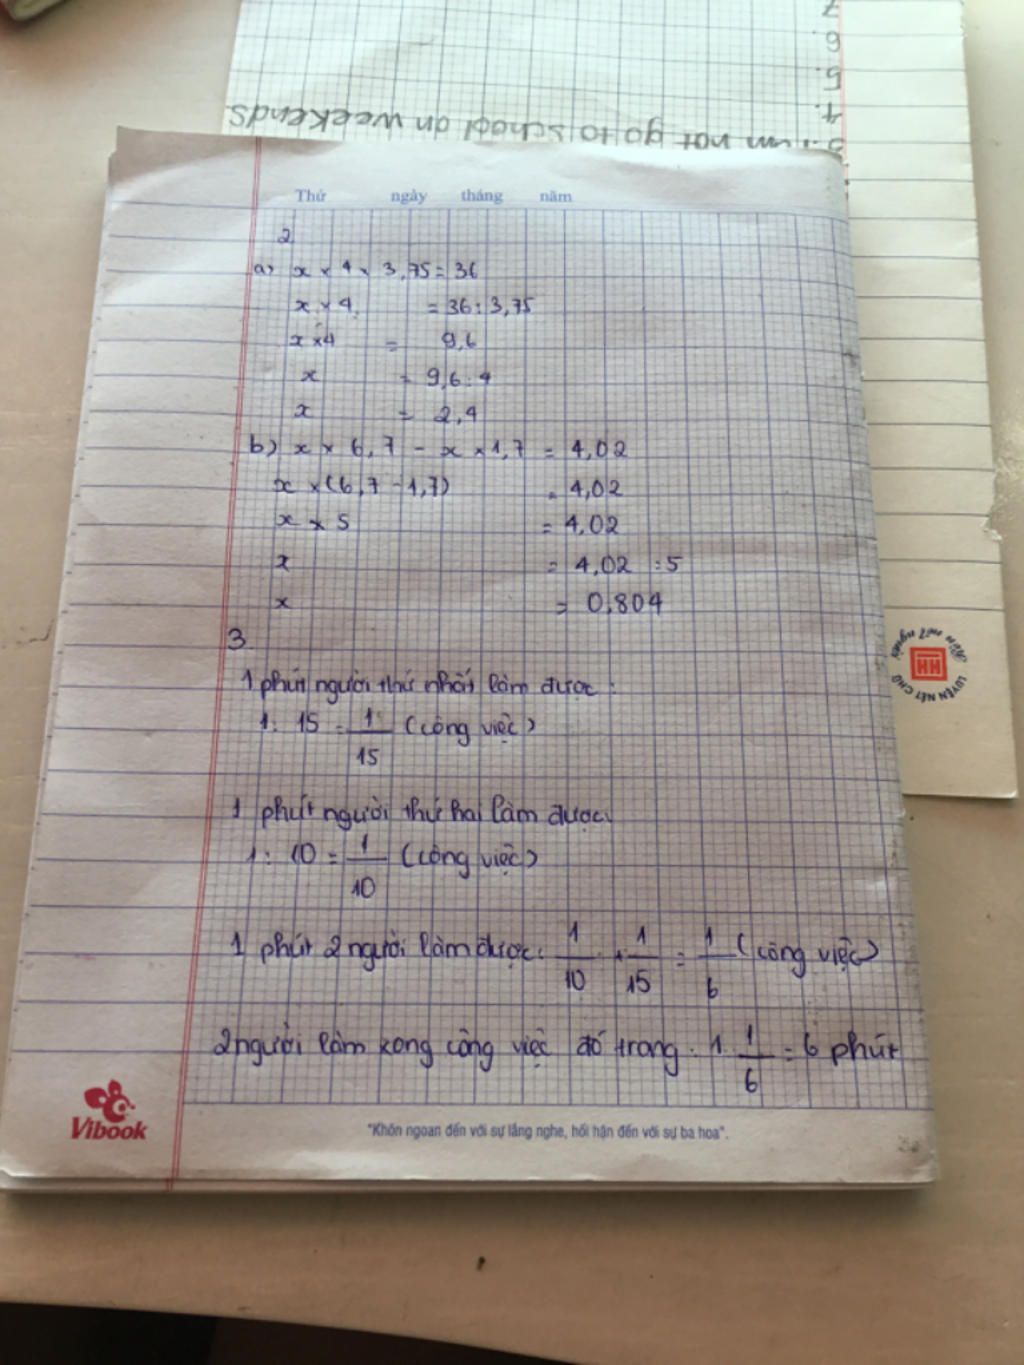 7
6.
5.
4.
not go to school on weekends
Thứ ngày tháng năm
2
a) x × 4 × 3,75 = 36
x × 4 = 36 : 3,75
x × 4 = 9,6
x = 9,6 : 4
x = 2,4
b) x × 6,7 - x × 1,7 = 4,02
x × (6,7 - 1,7) = 4,02
x × 5 = 4,02
x = 4,02 : 5
x = 0,804
3
1 phút người thứ nhất làm được :
1 : 15 = 1/15 (công việc)
1 phút người thứ hai làm được:
1 : 10 = 1/10 (công việc)
1 phút 2 người làm được: 1/10 + 1/15 = 1/6 (công việc)
2 người làm xong công việc đó trong : 1 : 1/6 = 6 phút
Vibook
"Khôn ngoan đến với sự lắng nghe, hối hận đến với sự ba hoa".
LUYỆN NÉT CHỮ
RÈN NẾT NGƯỜI
HH